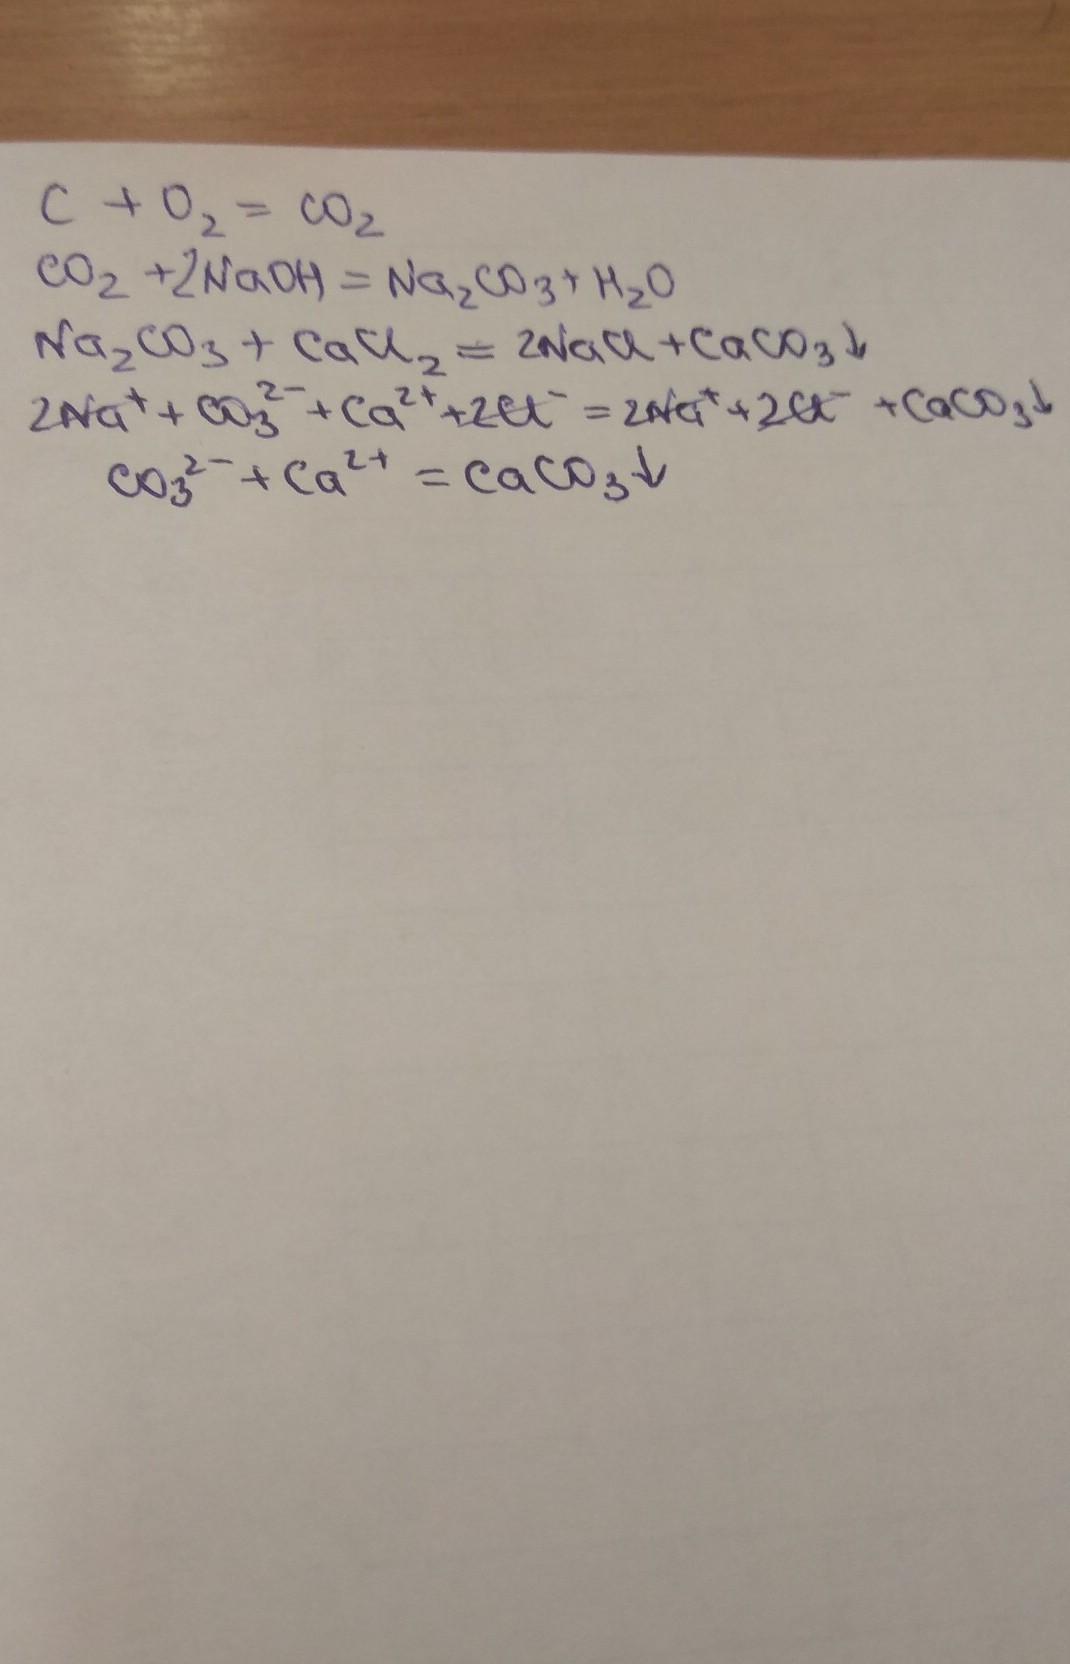 C + O₂ = CO₂
CO₂ + 2NaOH = Na₂CO₃ + H₂O
Na₂CO₃ + CaCl₂ = 2NaCl + CaCO₃↓
2Na⁺ + CO₃²⁻ + Ca²⁺ + 2Cl⁻ = 2Na⁺ + 2Cl⁻ + CaCO₃↓
CO₃²⁻ + Ca²⁺ = CaCO₃↓